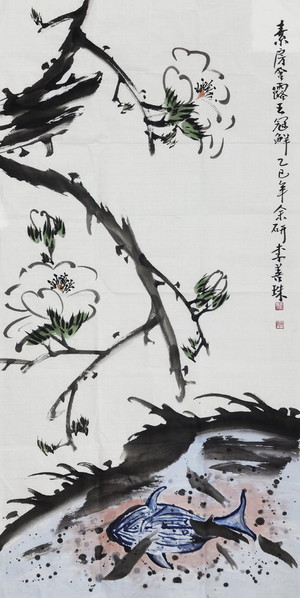 素房含露玉冠鲜 乙巳年余研 李善珠